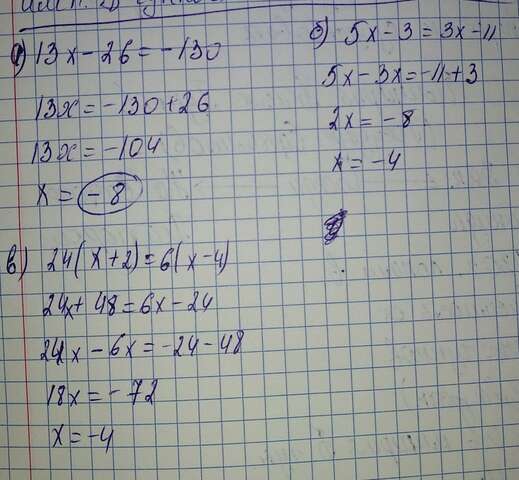 а) 13x - 26 = -130
13x = -130 + 26
13x = -104
x = -8
б) 5x - 3 = 3x - 11
5x - 3x = -11 + 3
2x = -8
x = -4
в) 24(x + 2) = 6(x - 4)
24x + 48 = 6x - 24
24x - 6x = -24 - 48
18x = -72
x = -4